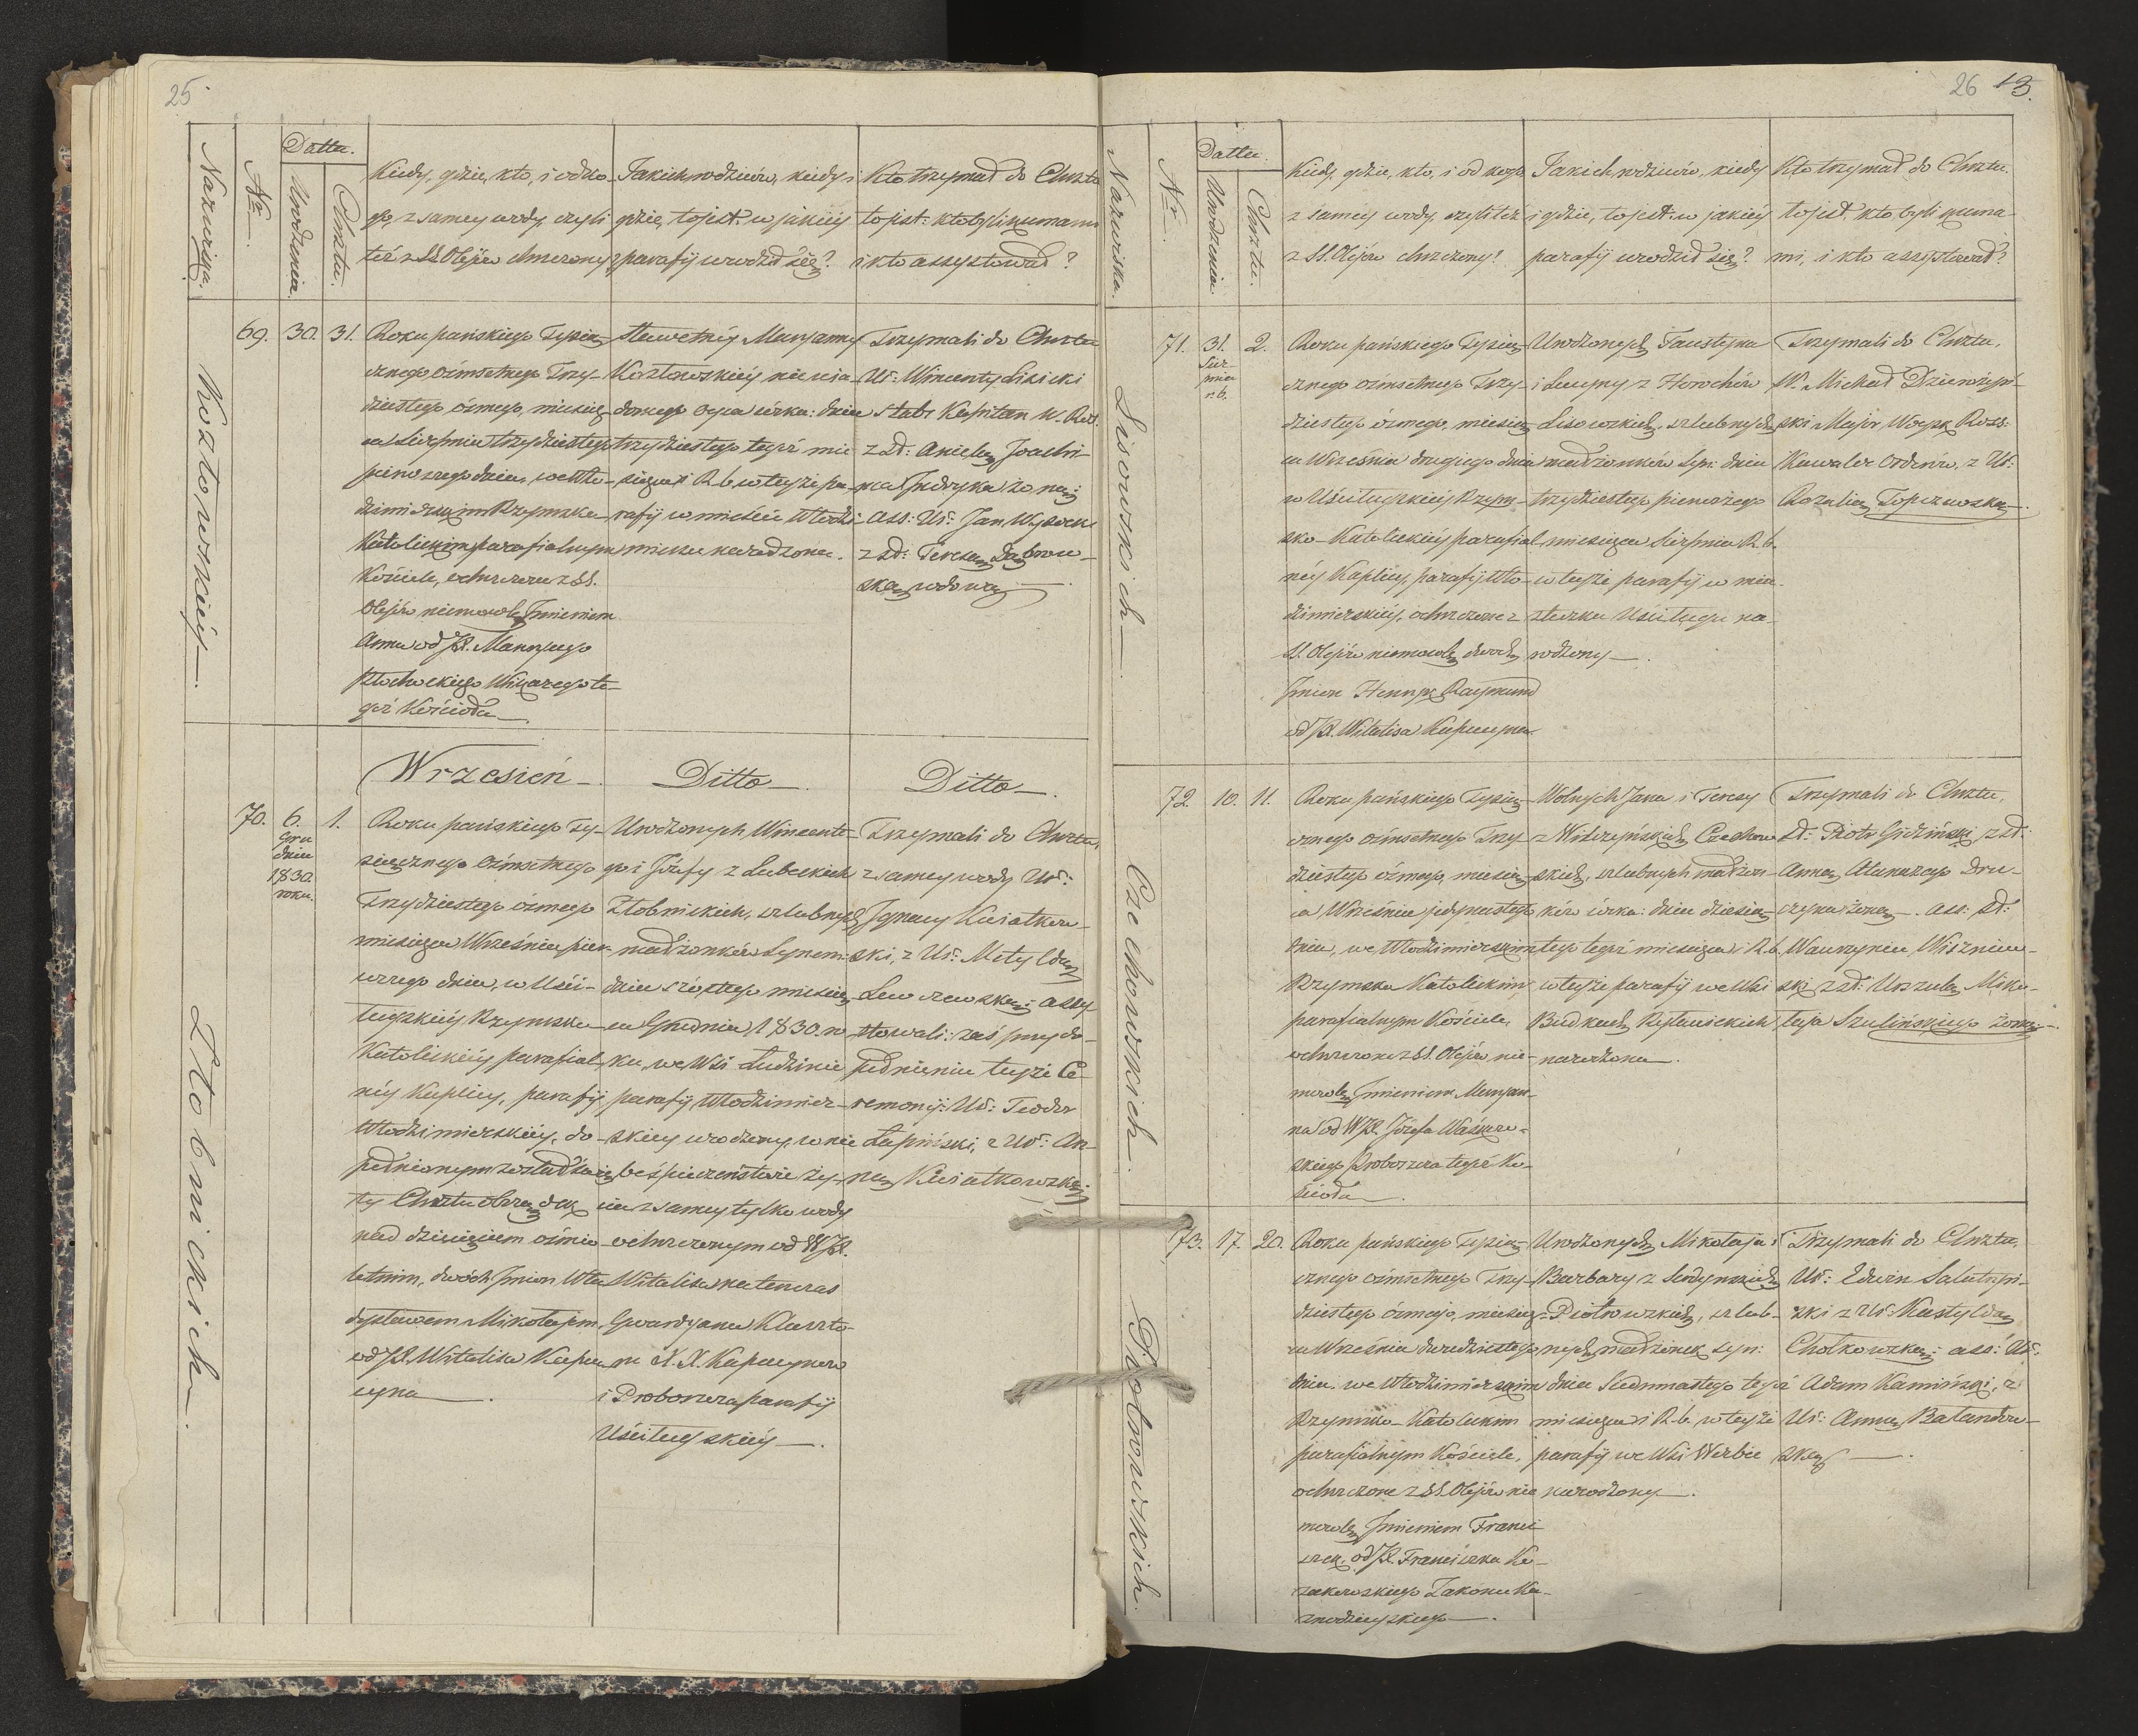 25
Nazwiska.
Nr.
Datta.
Urodzenia.
Chrztu.
Kiedy, gdzie, kto, i od ko-
go, z samey wody, czyli
też z SS. Olejów chrzczony?
Jakich rodziców, kiedy i
gdzie, to jest: w jakiéy
parafij urodził się?
Kto trzymał do Chrztu
to jest: kto byli kumami
i kto assystował?
Koztowskiéy
69.
30.
31.
Roku pańskiego Tysią-
cznego ósmsetnego Trzy-
dziestego, ósmego, miesią-
ca Sierpnia trzydziestego
pierwszego dnia, we Wło-
dzimierskim Rzymsko-
Katolickim parafialnym
Kościele, ochrzczone z SS.
Olejów niemowlę Imieniem
Anna od JX.
Wikarego te-
goż Kościoła
Sławetnéy Maryanny
Koztowskiéy niewia-
domego Oyca córka: dnia
trzydziestego tegoż mie-
siąca i R. b. w teyże pa-
rafij w mieście Włodzi-
mierzu narodzona.
Trzymali do Chrztu
Ur: Wincenty Lisicki
Stabs Kapitan W. Ros.
z Sł: Anielą Joachi-
ma Indryka żoną;
Ass: Ur: Jan Wysocki
z Sł: Teresą Dąbrow-
ską wdową
Wrzesień
Ditto
Ditto
Złobnickich
70.
6.
Gru
dnia
1830
roku.
1.
Roku pańskiego Ty-
siącznego ósmsetnego
Trzydziestego ósmego
miesiąca Września pier-
wszego dnia, w Uści-
ługskiéy Rzymsko-
Katolickiéy parafial-
néy Kaplicy, parafij
Włodzimierskiéy, do-
pełnionym został Świę
ty Chrztu Obrządek
nad dziecięciem ośmio
letnim, dwóch Imion Wła
dysławem Mikołajem
od JX. Witalisa Kapu
cyna
Urodzonych Wincente-
go i Józefy z Lubeckich
Złobnickich, ślubnych
małżonków Synem:
dnia szóstego miesią-
ca Grudnia 1830. ro
ku, we Wsi Ludzinie
parafij Włodzimier-
skiey urodzony, w nie
bespieczeństwie ży-
cia z samey tylko wody
ochrzczonym od WJX.
Witalisa na tenczas
Gwardyana Klaszto-
ru X. X. Kapucynów
i Proboszcza parafij
Uściługskiéy
Trzymali do Chrztu,
z samey wody Ur:
Ignacy Kwiatkow-
ski, z Ur: Matyldą
Lewczewską; assy-
stowali: zaś przy do-
pełnieniu teyże Ce-
remonij: Ur: Teodor
Łapiński, z Ur: An-
ną Kwiatkowską
26
13.
Nazwiska.
Nr.
Datta.
Urodzenia.
Chrztu.
Kiedy, gdzie, kto, i od kogo
z samey wody, czyli też
z SS. Olejów chrzczony?
Jakich rodziców, kiedy
i gdzie, to jest: w jakiéy
parafij urodził się?
Kto trzymał do Chrztu.
to jest, kto byli kuma-
mi, i kto assystował?
Lisowskich
71.
31.
Sier-
pnia
r. b.
2.
Roku pańskiego Tysią-
cznego ósmsetnego Trzy-
dziestego ósmego, miesią-
ca Września drugiego dnia
w Uściługskiéy Rzym-
sko-Katolickiéy parafial-
néy Kaplicy, parafij Wło-
dzimierskiéy, ochrzczone z
SS. Olejów niemowlę dwoch
Imion Henryk Raymund
od JX. Witalisa Kapucyna.
Urodzonych Faustyna
i Lucyny z Horochów
Lisowskich, ślubnych
małżonków Syn: dnia
trzydziestego pierwszego
miesiąca Sierpnia R. b.
w teyże parafij w mia-
steczku Uściługu na-
rodzony
Trzymali do Chrztu,
W. Michał
ski Major Woysk Ross:
Kawaler Orderów, z Ur:
Rozalią Topczewską
Czechowskich
72.
10.
11.
Roku pańskiego Tysią-
cznego ósmsetnego Trzy-
dziestego ósmego, miesią-
ca Września jedynastego
dnia, we Włodzimierskim
Rzymsko Katolickim
parafialnym Kościele,
ochrzczone z SS. Olejów nie-
mowlę Imieniem Maryan-
na od WJX. Józefa
skiego Proboszcza tegoż Ko-
ścioła
Wolnych Jana i Teresy
z Wilczyńskich Czechow
skich, ślubnych małżon-
ków córka: dnia dziesią-
tego tegoż miesiąca i R. b.
w teyże parafij we Wsi
Budkach
narodzona
Trzymali do Chrztu,
Sł: Piotr Gidziński, z Sł:
Anną Atanazego Dru-
czyna żoną. Ass: Sł:
Wawrzyniec Wiszniew-
ski z Sł: Urszulą Miko-
łaja Szulińskiego żoną
Piotrowskich
73.
17.
20.
Roku pańskiego Tysią-
cznego ósmsetnego Trzy-
dziestego ósmego, miesią-
ca Września dwudziestego
dnia, we Włodzimierskim
Rzymsko-Katolickim
parafialnym Kościele,
ochrzczone z SS. Olejów nie
mowlę Imieniem Franci
szek, od JX. Franciszka Ko-
zakowskiego Zakonu Ka-
znodzieyskiego
Urodzonych Mikołaja i
Barbary z
Piotrowskich, ślub-
nych małżonków Syn:
dnia Siedmnastego tegoż
miesiąca i R. b. w teyże
parafij we Wsi Werbie
narodzony
Trzymali do Chrztu,
Ur: Edwin
ski z Ur: Kastyldą
Chołkowską; ass: Ur:
Adam Kamiński, z
Ur: Anną Bałandow-
ską